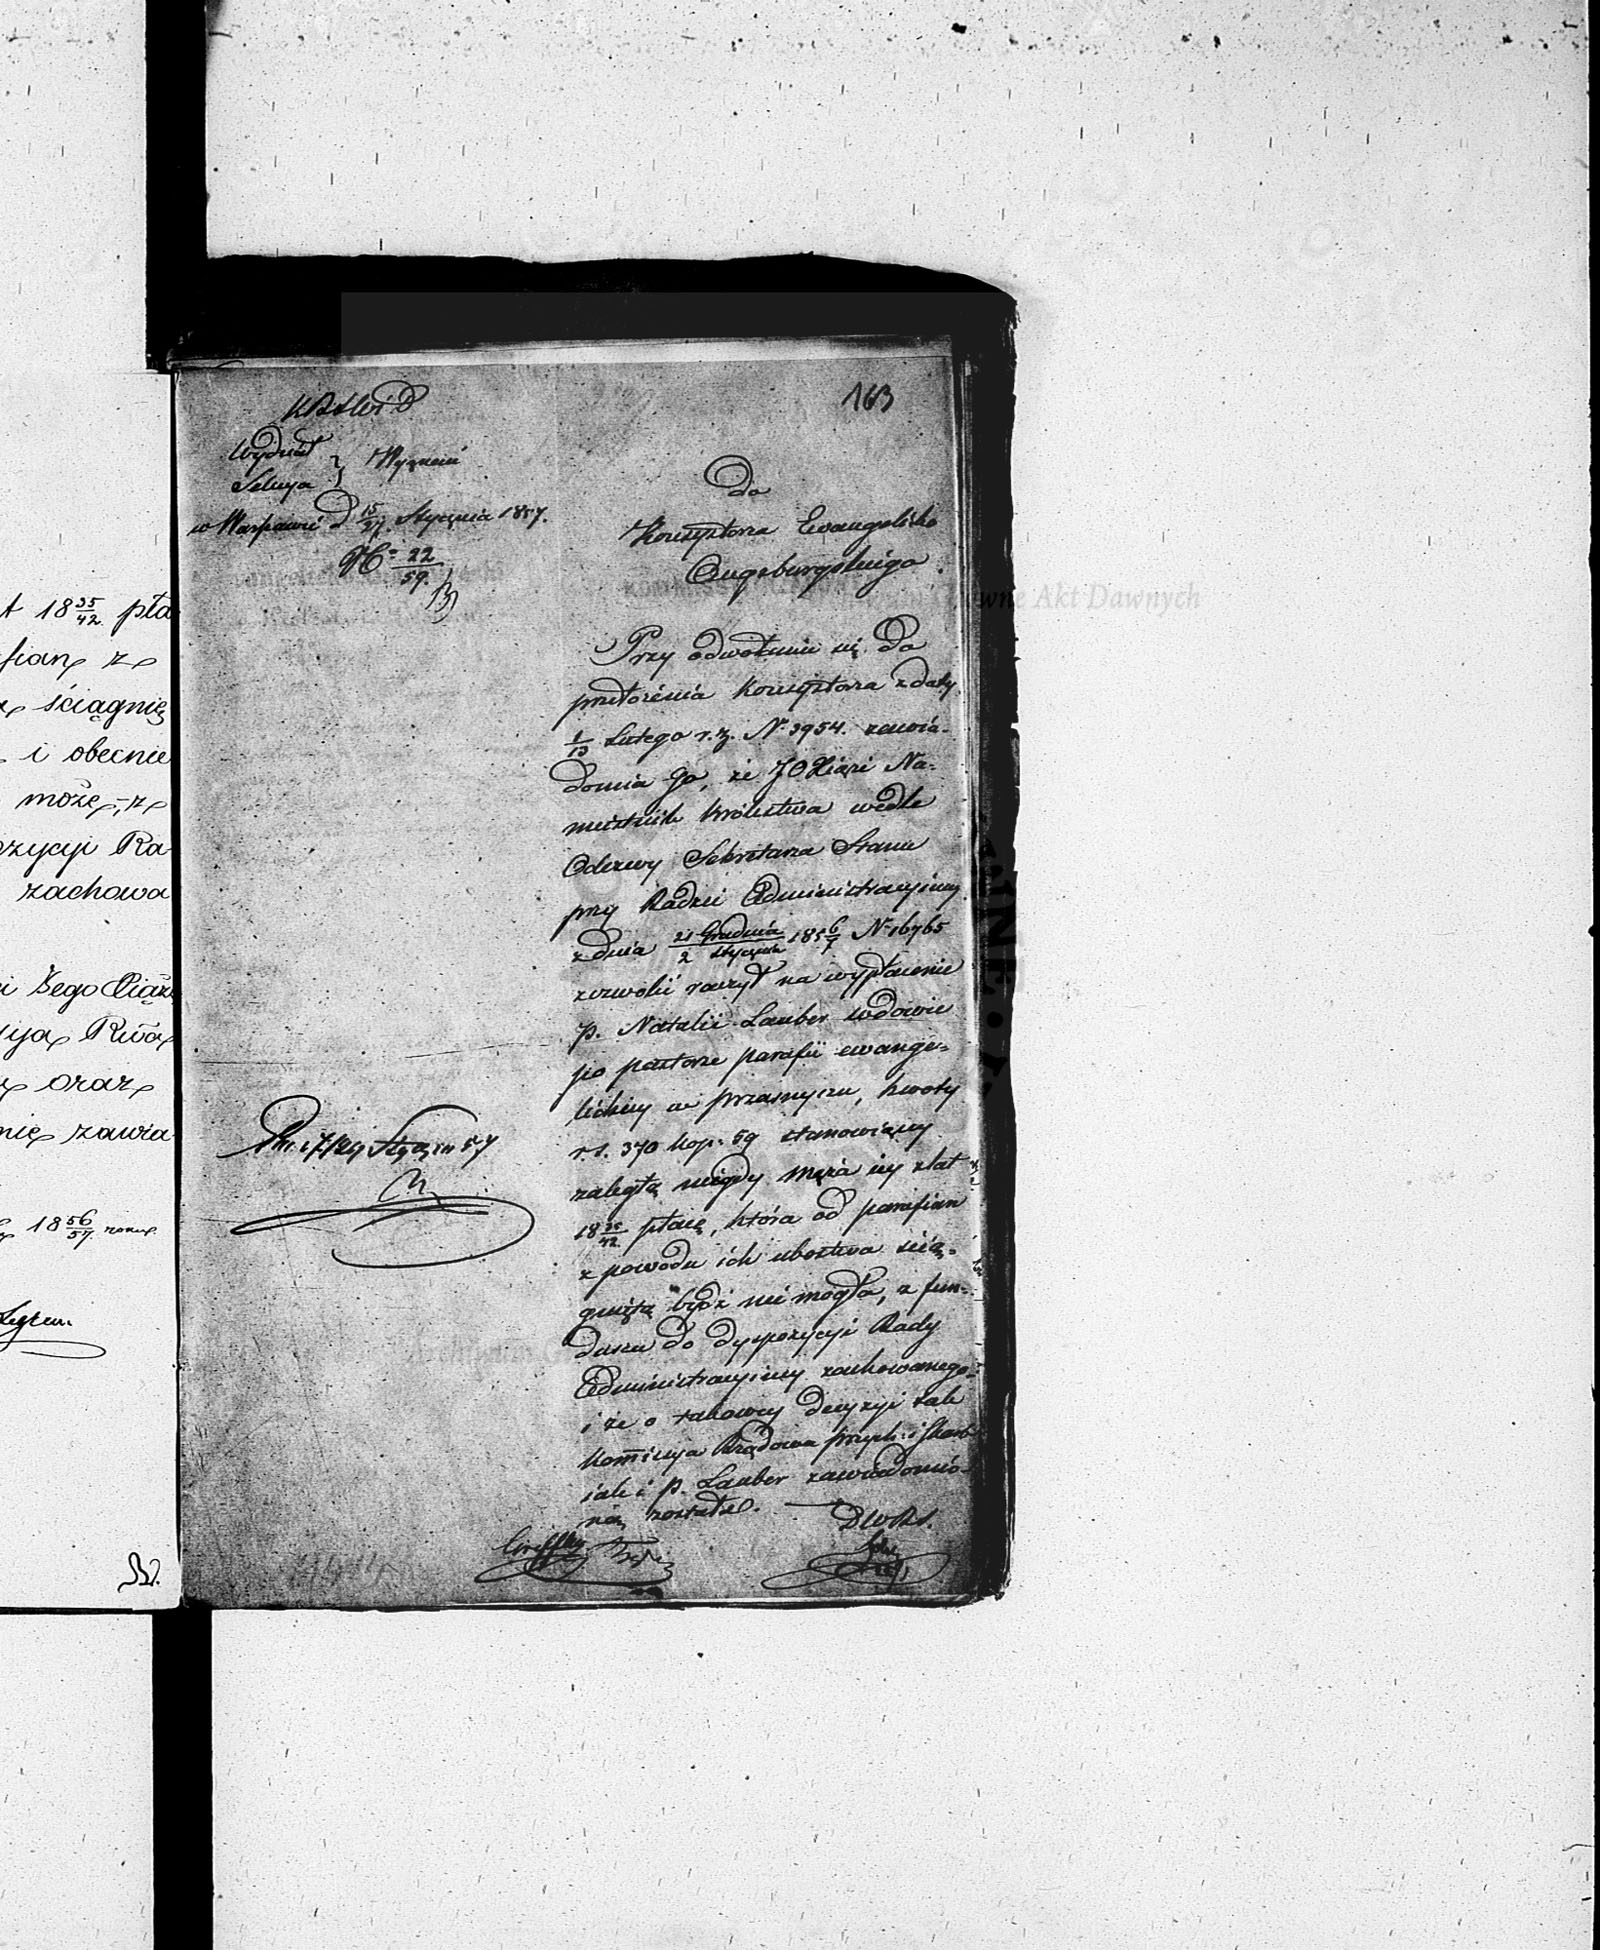 t 18 35/42 pła
fian z
ściągnię
i obecnie
może, z
ozycyi Ra-
zachowa
i Jego Xiąże
yja Rząd
oraz
nię zawia-
18 56/57 roku
163
K R S W i D
Wydział
Sekcya } Wyznań
w Warszawie d 15/27 Stycznia 1857.
N° 22/59
Do
Konsystorza Ewangelicko
Augsburgskiego.
Przy odwołaniu się do
przełożenia Konsystorza z daty
1/13 Lutego r. z. N° 3954. zawia-
domia go, że JO Xiąże Na-
miestnik Królestwa wedle
Odezwy Sekretarza Stanu
przy Radzie Administracyjnej
z dnia 21 Grudnia/2 Stycznia 185 6/7 N° 16765
zezwolić raczył na wypłacenie
p. Natalii Lauber wdowie
po pastorze parafii ewange-
lickiej w Przasnyszu, kwoty
r. s. 370 kop: 59 stanowiącej
zaległą niegdy męża jej z lat
18 35/42 płacę, która od parafian
z powodu ich ubóstwa ścią-
gniętą być nie mogła, z fun-
duszu do dyspozycyi Rady
Administracyjnej zachowanego
i że o takowej decyzyi tak
Kommissya Rządowa Przych: i Skarb
jak i p. Lauber zawiadomio-
ną została.
17/29 Stycznia 57
D W R S.
Archiwum Główne Akt Dawnych